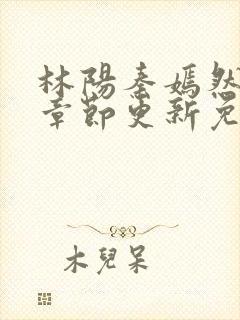 林陽秦嫣然
章節更新免
木兒呆